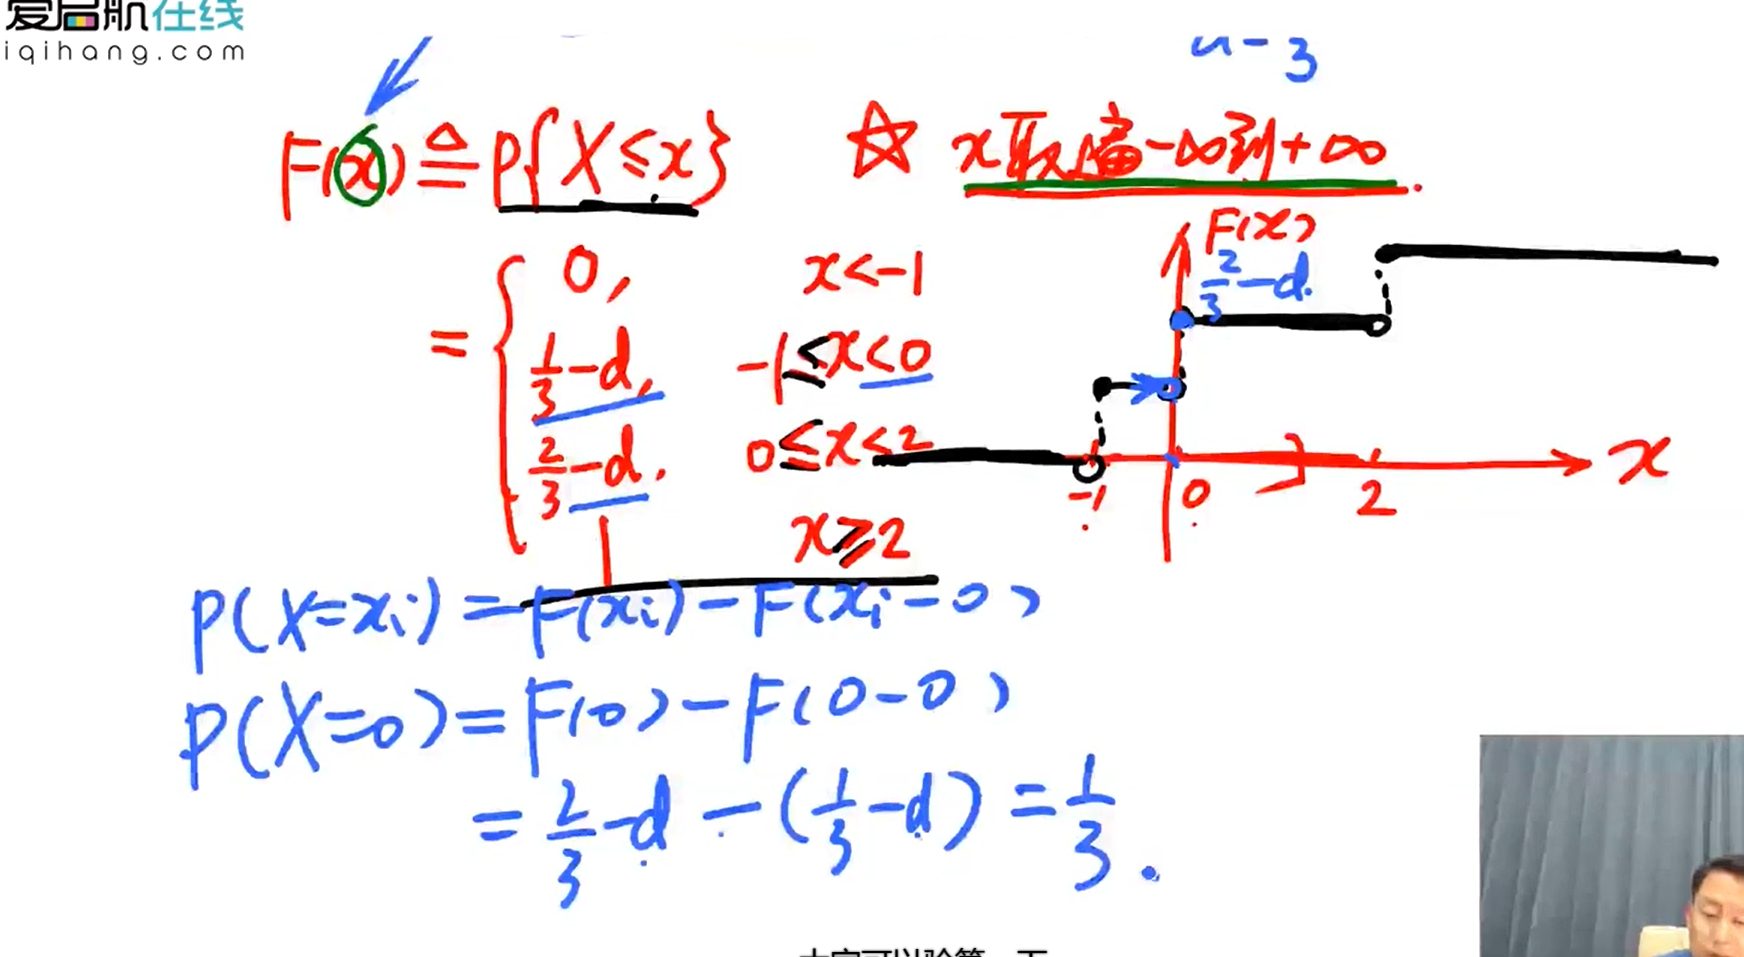 爱启航在线
iqihang.com
F(x) ≜ P{X≤x} ☆ x取遍-∞到+∞.
= { 0, x<-1
1/3-d, -1≤x<0
2/3-d. 0≤x<2
1 x≥2
F(x)
2/3-d.
-1 0 2 x
P(X=xi) = F(xi) - F(xi-0)
P(X=0) = F(0) - F(0-0)
= 2/3-d - (1/3-d) = 1/3.